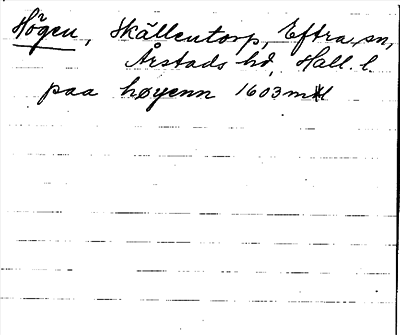 Högen, Skällentorp, Eftra sn,
Årstads hd, Hall. l.
paa høyenn 1603